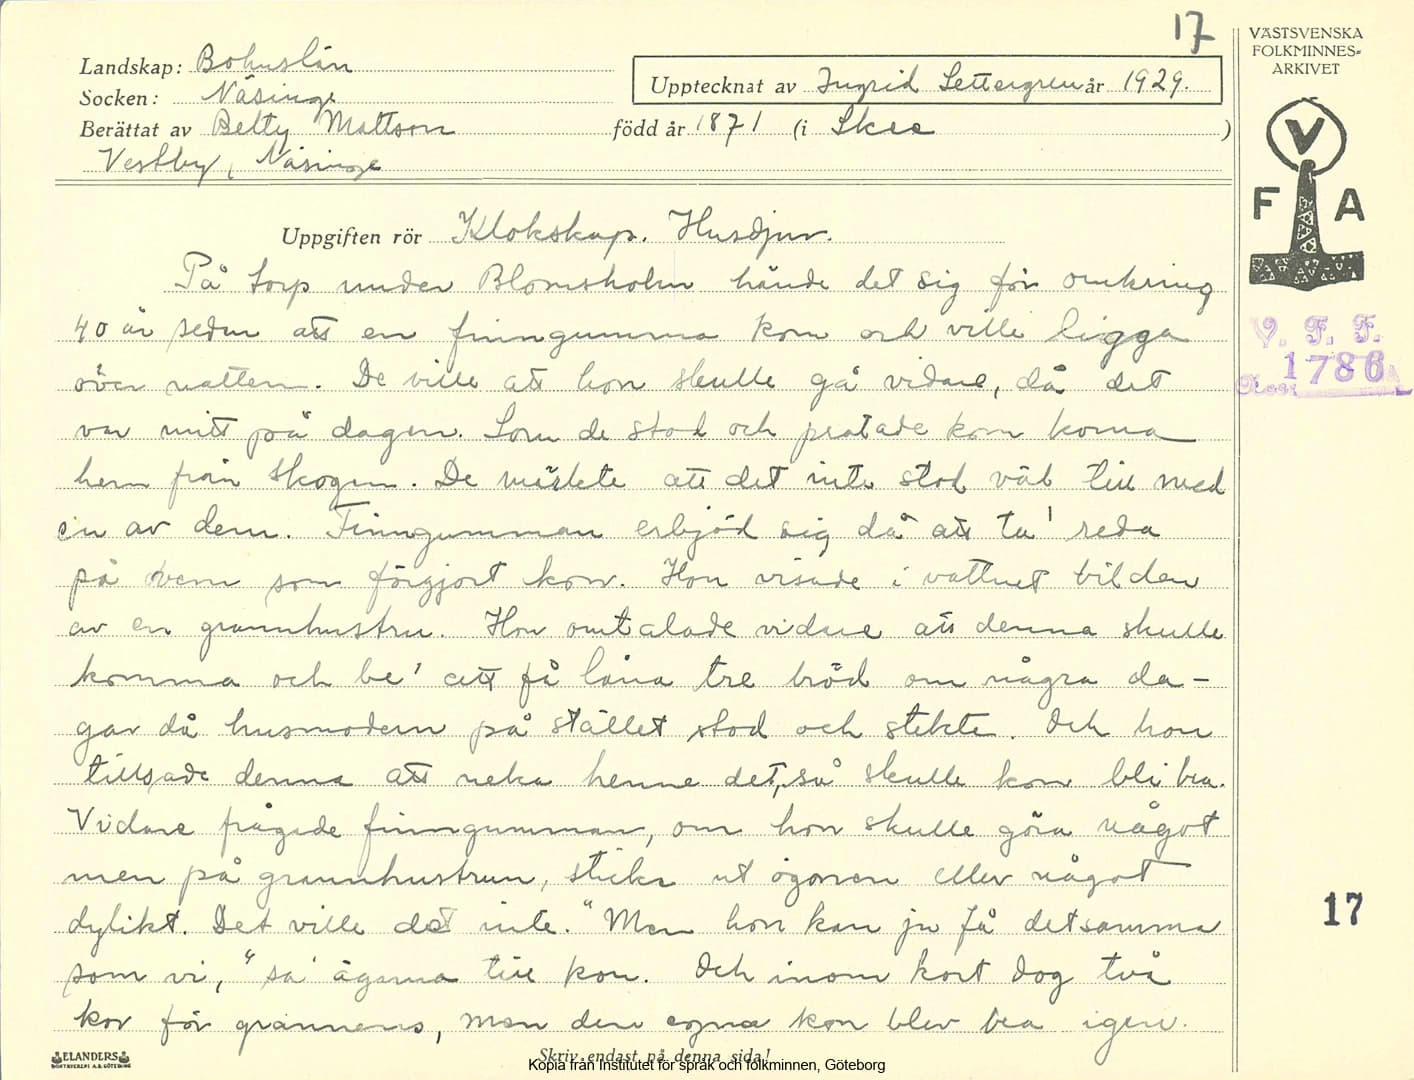 17
Landskap: Bohuslän
Socken: Näsinge
Upptecknat av Ingrid Settergren år 1929.
Berättat av Betty Mattson född år 1871 (i Skee )
Vestby, Näsinge
Uppgiften rör Klokskap. Husdjur.
På torp under Blomsholm hände det sig för omkring
40 år sedan att en finngumma kom och ville ligga
över natten. De ville att hon skulle gå vidare, då det
var mitt på dagen. Som de stod och pratade kom korna
hem från skogen. De märkte att det inte stod väl till med
en av dem. Finngumman erbjöd sig då att ta' reda
på vem som förgjort kon. Hon visade i vattnet bilden
av en grannhustru. Hon omtalade vidare att denna skulle
komma och be' att få låna tre bröd om några da-
gar då husmodern på stället stod och stekte. Och hon
tillsade denna att neka henne det, så skulle kon bli bra.
Vidare frågade finngumman, om hon skulle göra något
men på grannhustrun, sticka ut ögonen eller något
dylikt. Det ville de inte. "Men hon kan ju få detsamma
som vi," sa' ägarna till kon. Och inom kort dog två
kor för grannens, men den egna kon blev bra igen.
Skriv endast på denna sida!
ELANDERS
BOKTRYCKERI A.B. GÖTEBORG
VÄSTSVENSKA
FOLKMINNES-
ARKIVET
V
F A
V. F. F.
1786
17
Kopia från Institutet för språk och folkminnen, Göteborg